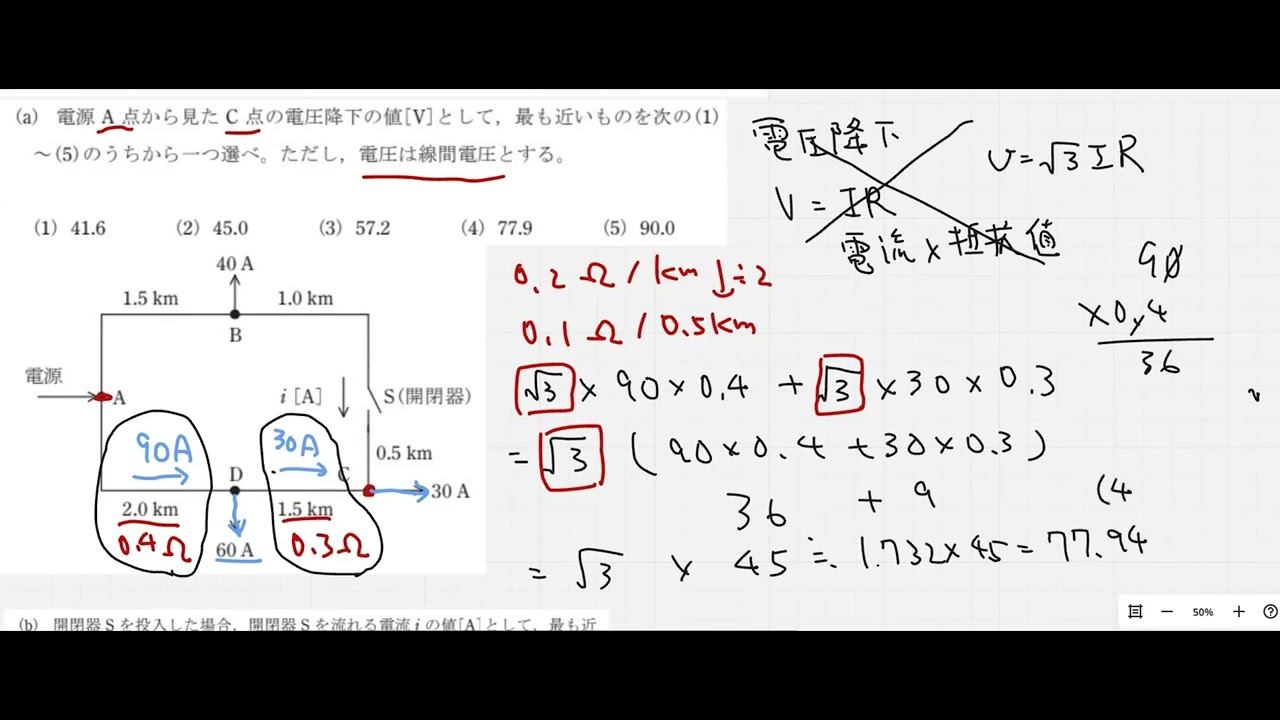 (a) 電源 A 点から見た C 点の電圧降下の値[V]として，最も近いものを次の(1)
～(5)のうちから一つ選べ。ただし，電圧は線間電圧とする。
(1) 41.6 (2) 45.0 (3) 57.2 (4) 77.9 (5) 90.0
40 A
1.5 km 1.0 km
B
電源
A
i [A]
S(開閉器)
90A
30A
0.5 km
D
C
30 A
2.0 km
1.5 km
0.4Ω
60 A
0.3Ω
電圧降下
V = IR
電流×抵抗値
V=√3IR
0.2Ω/km ↓÷2
0.1Ω/0.5km
√3×90×0.4+√3×30×0.3
=√3(90×0.4+30×0.3)
36 + 9
(4
=√3×45≒1.732×45=77.94
90
×0.4
36
50%
(b) 開閉器 S を投入した場合，開閉器 S を流れる電流 i の値[A]として，最も近